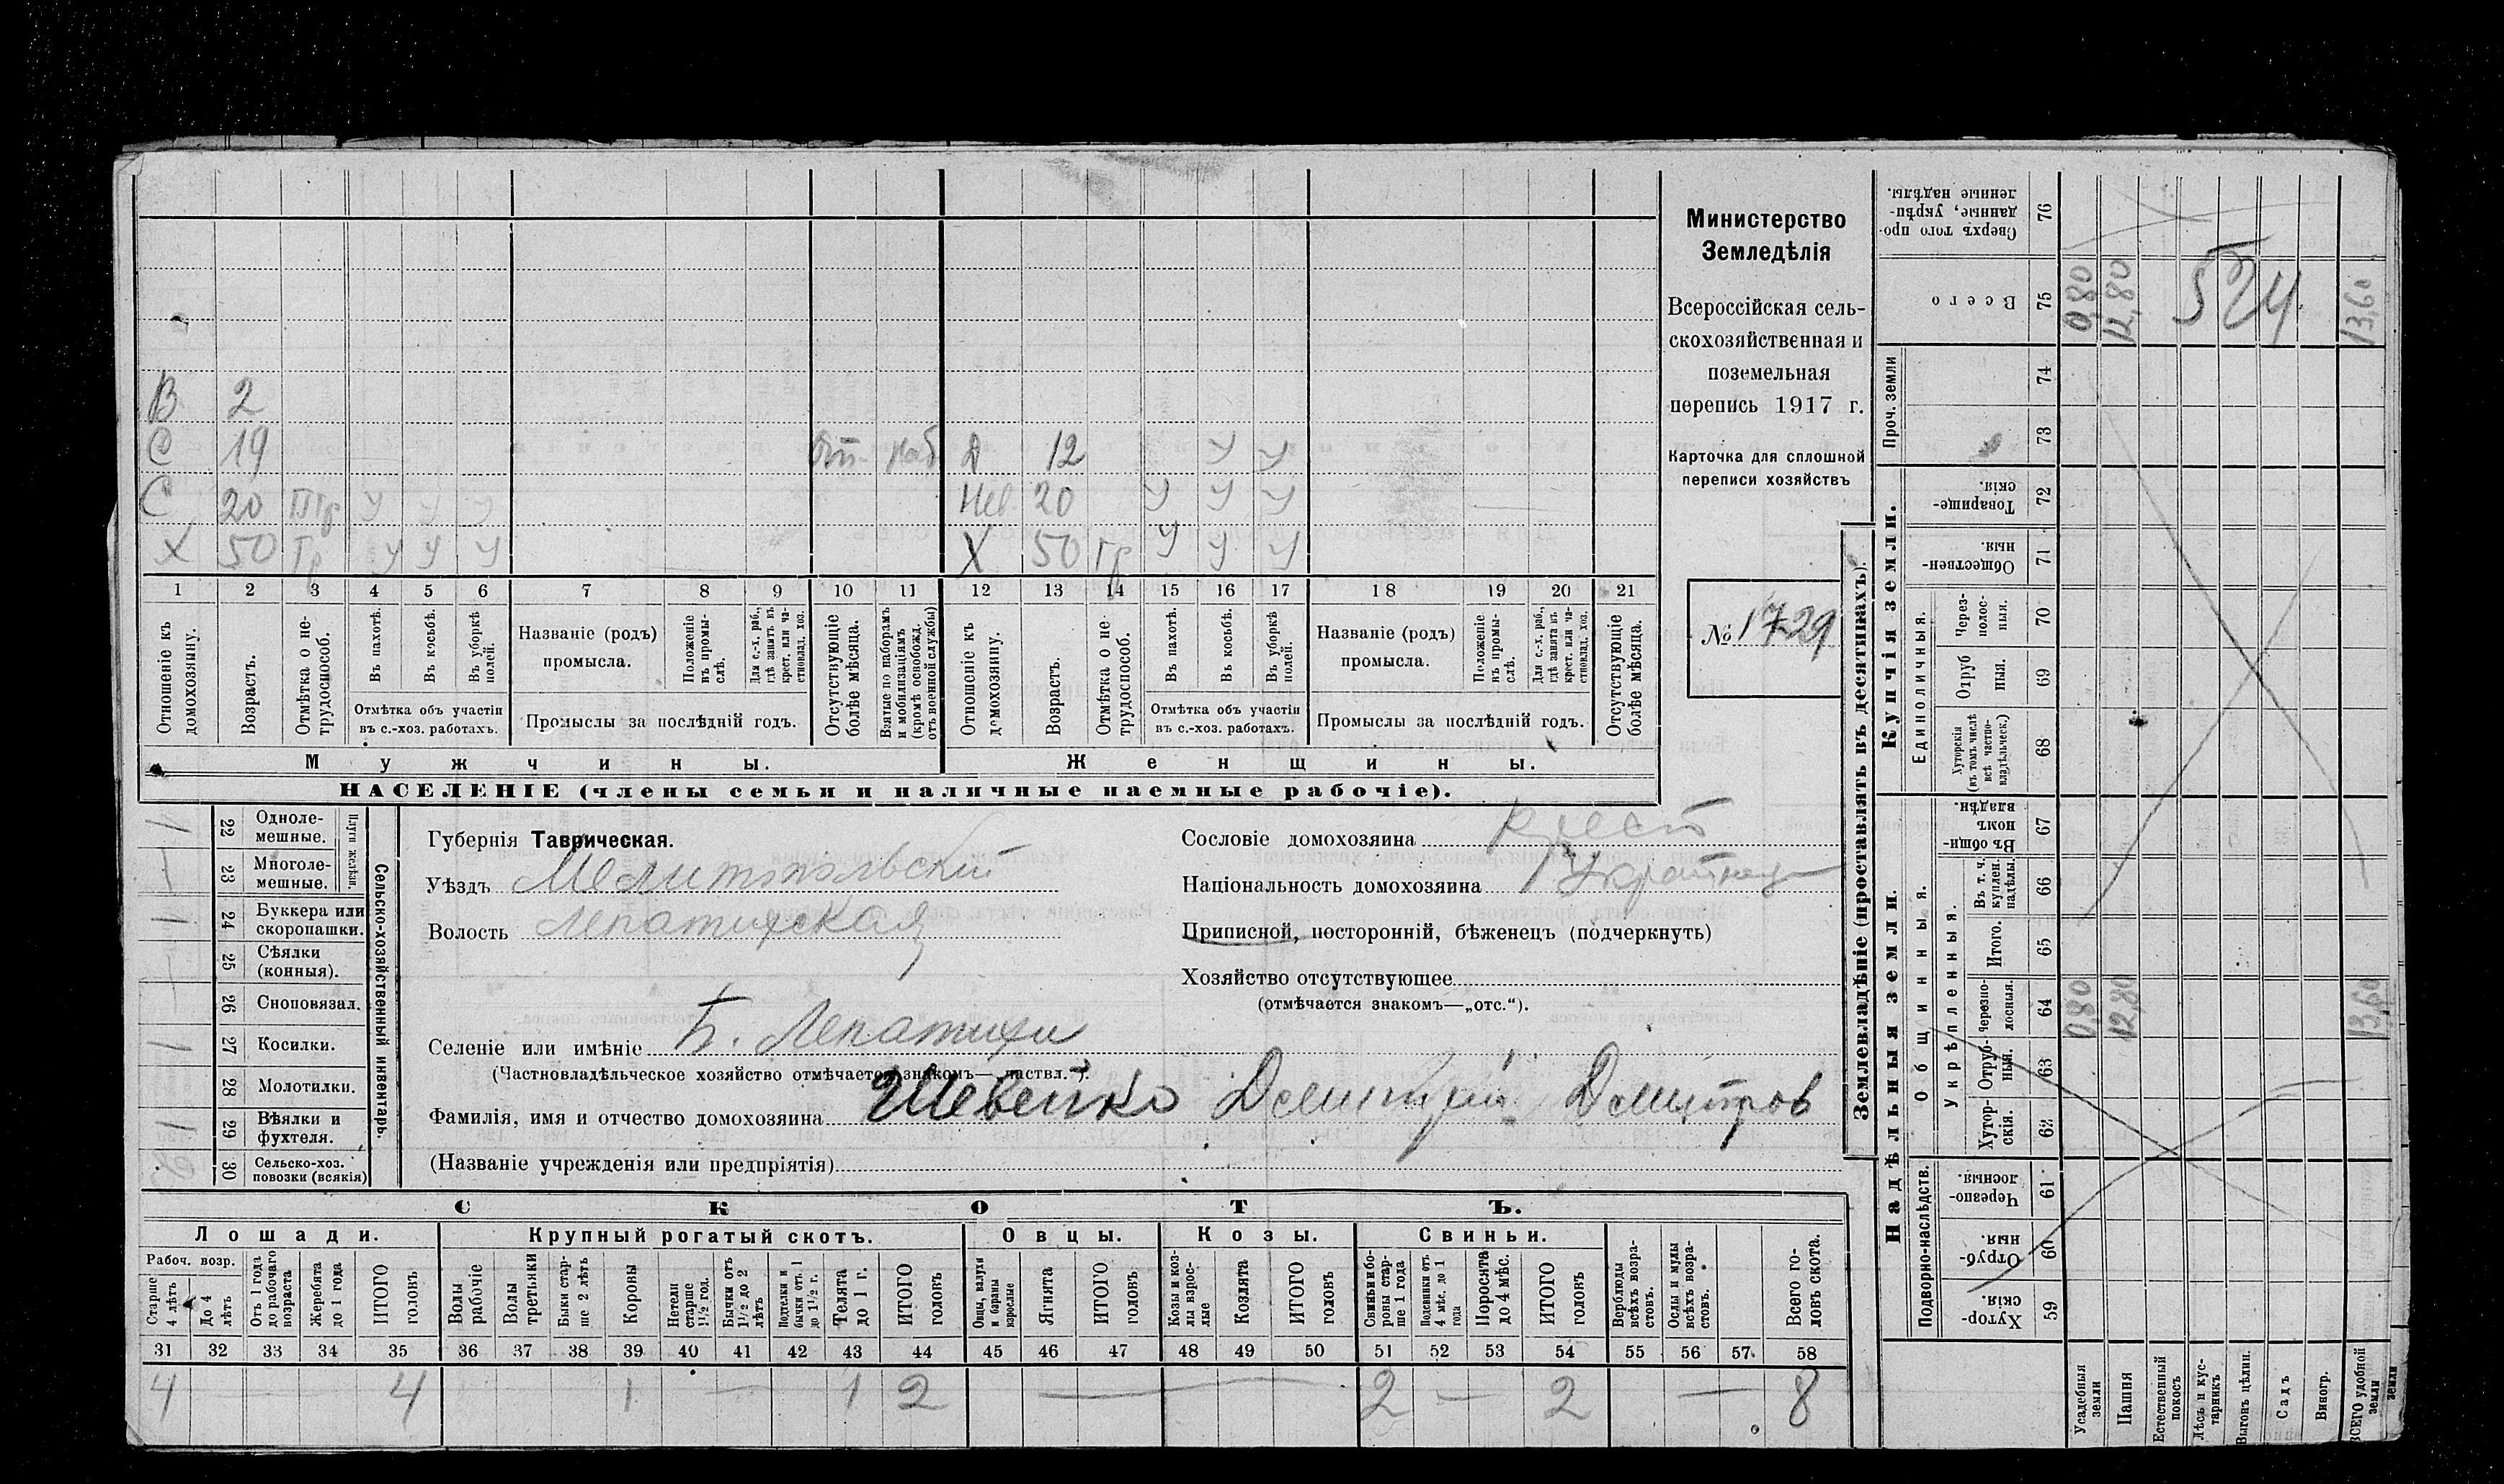 В 2
С 19 Д 12 У У
С 20 У У У Нев. 20 У У У
Х 50 Гр У У У Х 50 Гр У У У
1 2 3 4 5 6 7 8 9 10 11 12 13 14 15 16 17 18 19 20 21
Отношеніе къ домохозяину.
Возрастъ.
Отмѣтка о не-трудоспособ.
Въ пахотѣ.
Въ косьбѣ.
Въ уборкѣ полей.
Отмѣтка объ участіи
въ с.-хоз. работахъ.
Названіе (родъ)
промысла.
Положеніе въ промы-слѣ.
Для с.-х. раб., гдѣ занятъ въ крест. или ча-стновлад. хоз.
Промыслы за послѣдній годъ.
Отсутствующіе болѣе мѣсяца.
Взятые по наборамъ и мобилизаціямъ (кромѣ освобожд. отъ военной службы)
Отношеніе къ домохозяину.
Возрастъ.
Отмѣтка о не-трудоспособ.
Въ пахотѣ.
Въ косьбѣ.
Въ уборкѣ полей.
Отмѣтка объ участіи
въ с.-хоз. работахъ.
Названіе (родъ)
промысла.
Положеніе въ промы-слѣ.
Для с.-х. раб., гдѣ занята въ крест. или ча-стновлад. хоз.
Промыслы за послѣдній годъ.
Отсутствующіе болѣе мѣсяца.
Мужчины. Женщины.
НАСЕЛЕНІЕ (члены семьи и наличные наемные рабочіе).
Министерство
Земледѣлія
Всероссійская сель-
скохозяйственная и
поземельная
перепись 1917 г.
Карточка для сплошной
переписи хозяйствъ
№ 1729
1 22 Одноле-мешные.
23 Многоле-мешные.
Плуги желѣзн.
1 24 Буккера или скоропашки.
25 Сѣялки (конныя).
26 Сноповязал.
1 27 Косилки.
28 Молотилки.
1 29 Вѣялки и фухтеля.
30 Сельско-хоз. повозки (всякія)
Сельско-хозяйственный инвентарь.
Губернія Таврическая.
Уѣздъ Мелитопольскій
Волость Лепатихская
Сословіе домохозяина Крест
Національность домохозяина Украинец
Приписной, посторонній, бѣженецъ (подчеркнуть)
Хозяйство отсутствующее
(отмѣчается знакомъ—„отс.“).
Селеніе или имѣніе Б. Лепатихи
(Частновладѣльческое хозяйство отмѣчается знакомъ—„частвл.“).
Фамилія, имя и отчество домохозяина Шевенко Дмитрий Дмитров
(Названіе учрежденія или предпріятія)
СКОТЪ.
Лошади. Крупный рогатый скотъ. Овцы. Козы. Свиньи.
Рабоч. возр.
Старше 4 лѣтъ
До 4 лѣтъ
Отъ 1 года до рабочаго возраста
Жеребята до 1 года
ИТОГО головъ
Волы рабочіе
Волы третьяки
Быки стар-ше 2 лѣтъ
Коровы
Нетели старше 1½ год.
Бычки отъ 1½ до 2 лѣтъ
Подтелки и бычки отъ 1 до 1½ г.
Телята до 1 г.
ИТОГО головъ
Овцы, валухи и бараны взрослые
Ягнята
ИТОГО головъ
Козы и коз-лы взрос-лые
Козлята
ИТОГО головъ
Свиньи и бо-ровы стар-ше 1 года
Подсвинки отъ 4 мѣс. до 1 года
Поросята до 4 мѣс.
ИТОГО головъ
Верблюды всѣхъ возра-стовъ.
Ослы и мулы всѣхъ возра-стовъ.
Всего го-ловъ скота.
31 32 33 34 35 36 37 38 39 40 41 42 43 44 45 46 47 48 49 50 51 52 53 54 55 56 57 58
4 — 4 1 — 1 2 — 2 — 2 — 8
Землевладѣніе (проставлять въ десятинахъ).
Купчія земли.
Надѣльныя земли.
Сверхъ того про-данные, укрѣп-ленные надѣлы. 76
Всего 75 0,80 12,80 13,60
524
Проч. земли 74 73
Товарище-скія. 72
Обществен-ныя. 71
Единоличныя.
Через-полос-ныя. 70
Отруб ныя. 69
Хуторскія (въ томъ числѣ всѣ частно-владѣльческ.) 68
Въ общин-номъ владѣн. 67
Общинныя.
Укрѣпленныя.
Въ т. ч. куплен. надѣлы. 66
Итого. 65
Черезпо-лосныя. 64 0,80 12,80 13,60
Отруб-ныя. 63
Хутор-скія. 62
Подворно-наслѣдств.
Черезпо-лосныя. 61
Отруб-ныя. 60
Хутор-скія. 59
Усадебныя земли
Пашня
Естественный покосъ
Лѣсъ и кус-тарникъ
Выгонъ цѣлин.
Садъ
Виногр.
ВСЕГО удобной земли
земли